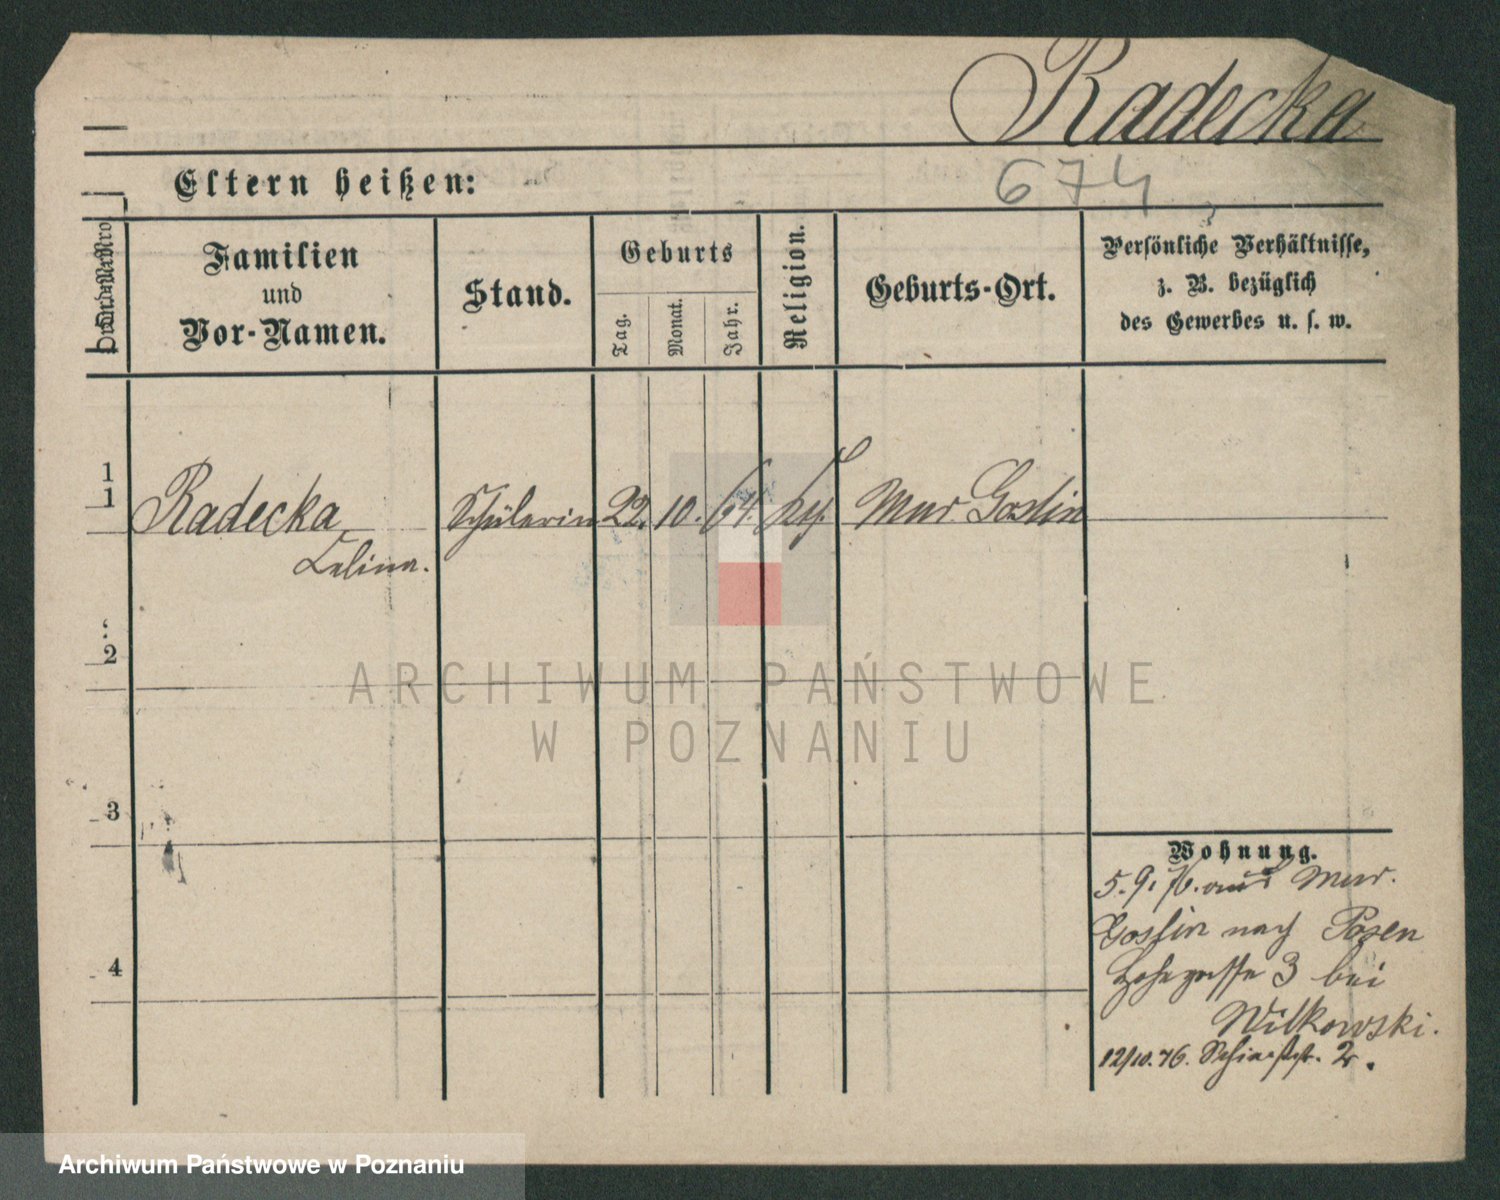 Radecka
Eltern heißen:
674
Familien
und
Vor-Namen.
Stand.
Geburts
Tag.
Monat.
Jahr.
Religion.
Geburts-Ort.
Persönliche Verhältnisse,
z. B. bezüglich
des Gewerbes u. s. w.
1
1
Radecka
Celina.
Schülerin
22.
10.
64.
Mur. Goslin
2
3
4
Wohnung.
5. 9. 76. aus Mur.
Goslin nach Posen
3 bei
Wilkowski.
12/10. 76. 2.
ARCHIWUM PAŃSTWOWE
W POZNANIU
Archiwum Państwowe w Poznaniu